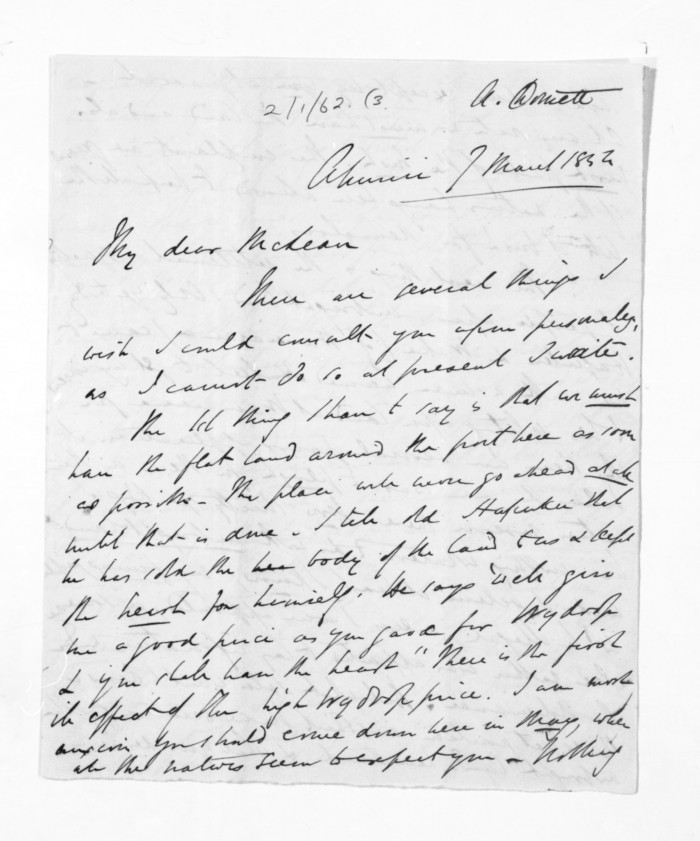 2/1/62. (3.
A. Domett
Ahuriri 7 March 185
My dear McLean
There are several things I
wish I could consult you upon personally,
as I cannot do so at present I write.
The 1st thing I have to say is that we must
have the flat land around the port here as soon
as possible - The place will never go ahead at all
until that is done. I tell old that
he has sold the body of the land to us & kept
the heart for himself. He says "well give
me a good price as you gave for Wydrop
& you shall have the heart" There is the first
ill effect of the high Wydrop price. I am most
anxious you should come down here in May, when
all the natives seem to expect you - Nothing